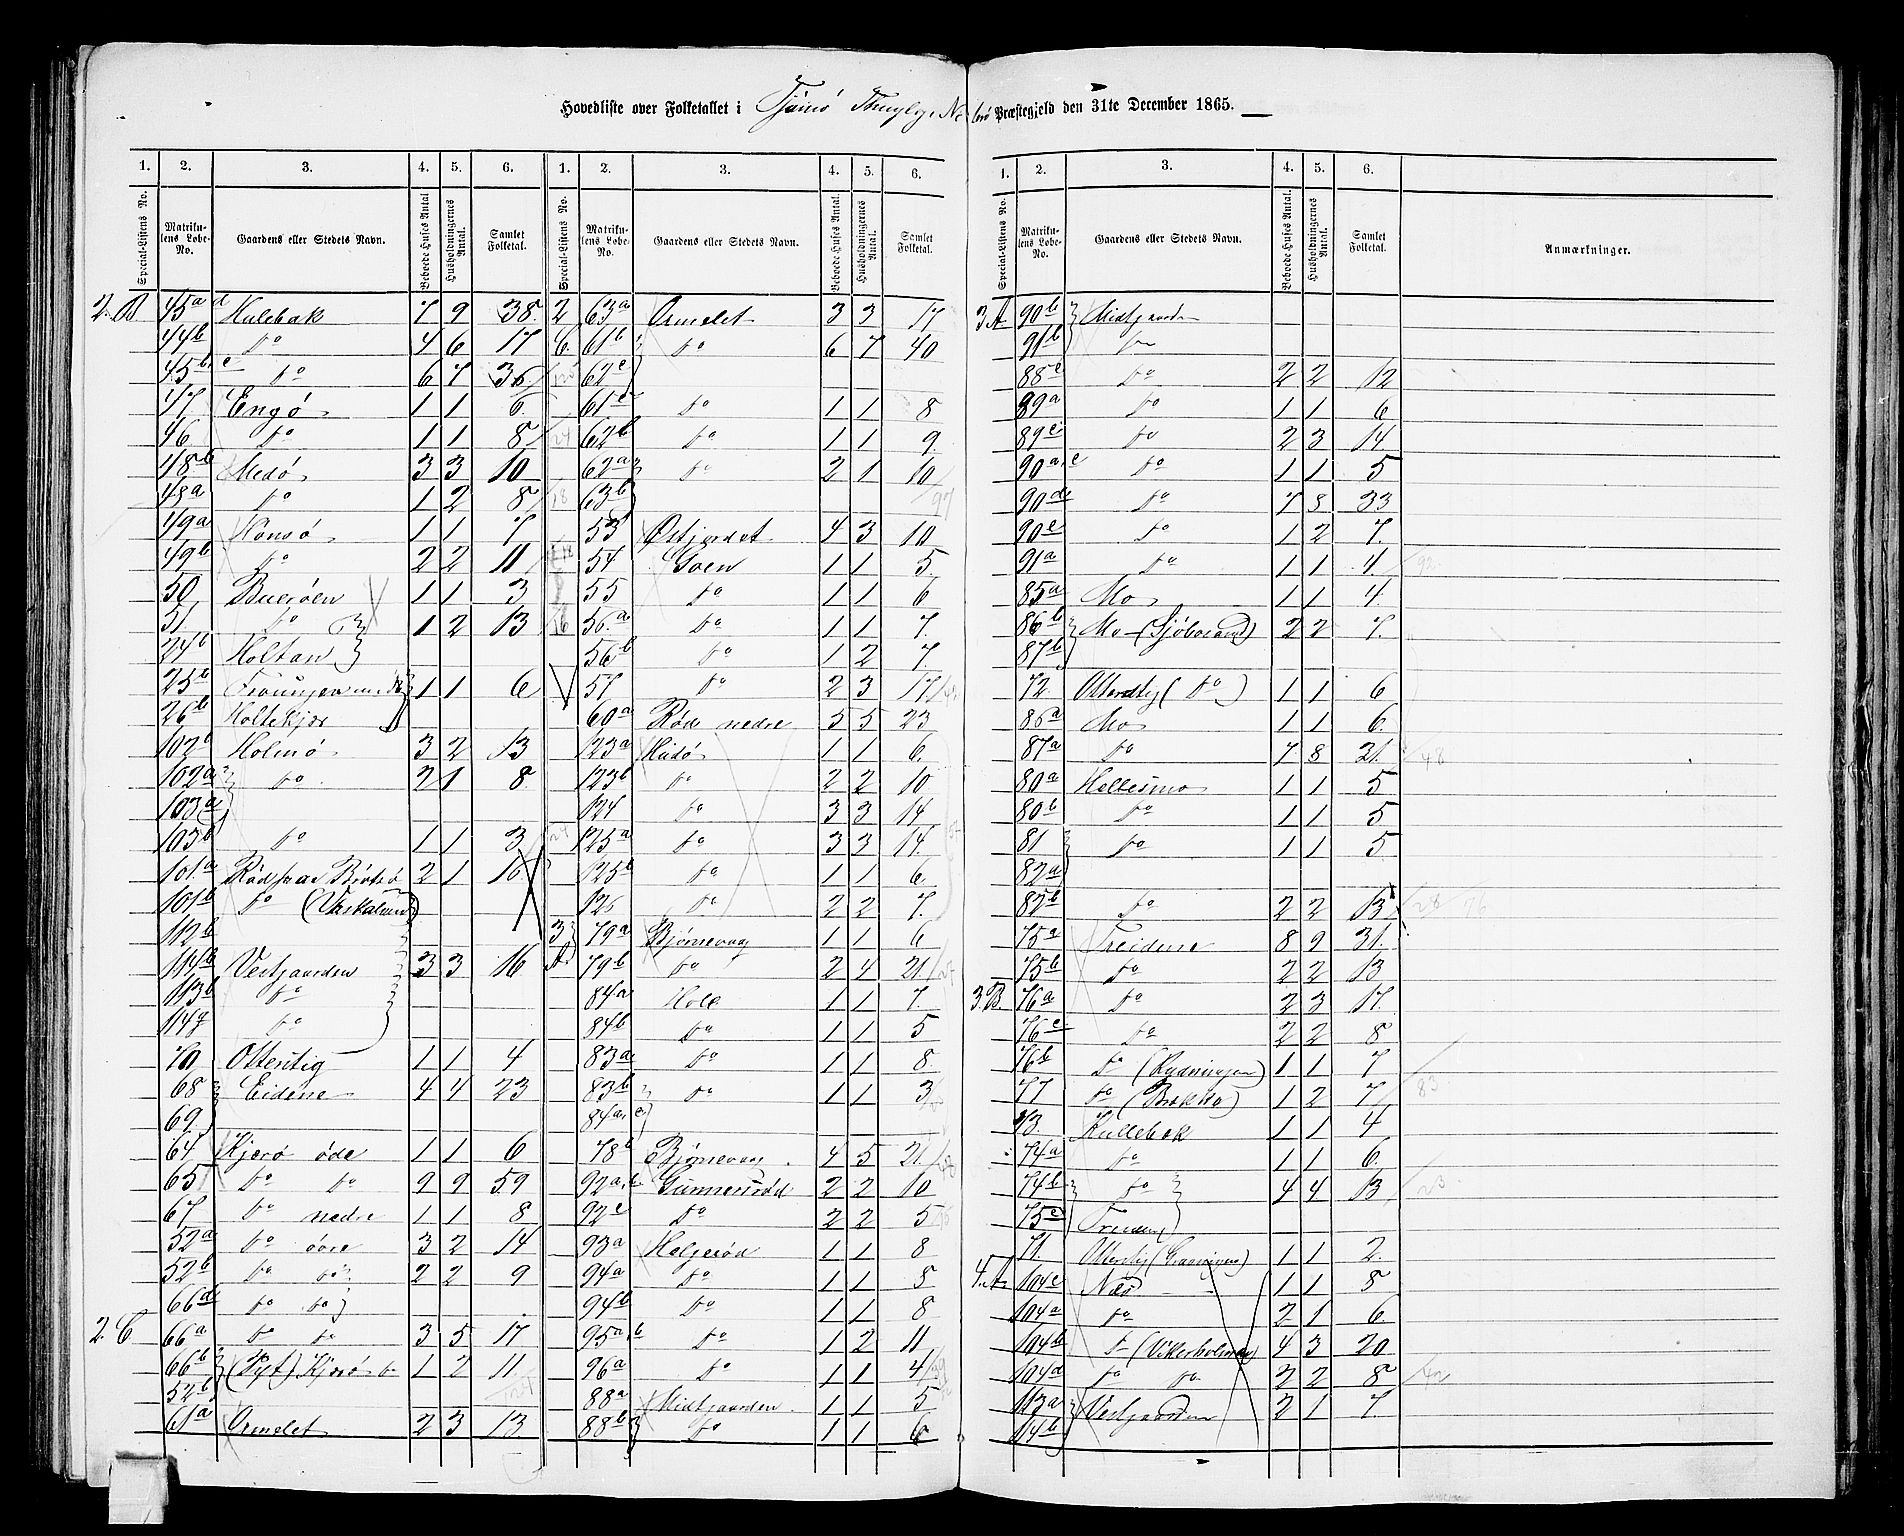 Hovedliste over Folketallet i Tjömö Præstegjeld den 31te December 1865.
1. 2. 3. 4. 5. 6. 1. 2. 3. 4. 5. 6. 1. 2. 3. 4. 5. 6.
Special-Listens No. Matrikulens Løbe-No. Gaardens eller Stedets Navn. Beboede Huses Antal Husholdningernes Antal. Samlet Folketal. Special-Listens No. Matrikulens Løbe-No. Gaardens eller Stedets Navn. Beboede Huses Antal. Husholdningernes Antal. Samlet Folketal. Special-Listens No. Matrikulens Løbe-No. Gaardens eller Stedets Navn. Beboede Huses Antal. Husholdningernes Antal. Samlet Folketal. Anmærkninger.
2. B 45a d Hulebak 7 9 38.
44b do 4 6 17
45b. c do 6 7 36.
47 Engö 1 1 6.
46 do 1 1 8
48b Medö 3 3 10
48a do 1 2 8
49a Hönsö 1 1 7
49b do 2 2 11
50 Bueröen 1 1 3
51. do 1 2 13
24b Holtan
25b 1 1 6
26b Holtekjær
102b Holmö 3 2 13
102a do 2 1 8
103a
103b do 1 1 3
101.a Röd paa Brötsö 2 1 16
101b do
112b
114b Vestgaarden 3 3 16
113b do
114g do
70 Otterstig 1 1 4
68 Eidene 4 4 23
69
64 Kjærö öde 1 1 6
65 do do 9 9 59
67 do nedre 1 1 8
52a do övre 3 2 14
52b do do 2 2 9
66d do do
2. C 66a do do 3 5 17
66b (Pyt) Kjærö 1 2 11
52b
61a Ormelet 2 3 13
2 63a Ormelet 3 3 17
C. 61b do 6 7 40
62c
61c do 1 1 8
62b do 1 1 9
62a do 2 1 10
63b
53 Östjordet 4 3 10
54 Goen 1 1 5
55 do 1 1 6
56.a do 1 1 7.
56b do 1 2 7.
57 do 2 3 17
60a Röd nedre 5 5 23
123a Hudö 1 1 6.
123b do 2 2 10
124 do 3 3 14
125a do 3 3 14.
125b do 1 1 6.
126 do 2 2 7.
3 79a Bjönnevaag 1 1 6
A. 79b do 2 4 21
84a Holt 1 1 7.
84b do 1 1 5
83a do 1 1 8.
83b do 1 1 3
84a, c
78b Bjönnevaag 4 5 21
92a, b Gunnersröd 2 2 10
92c do 2 2 5
93a Holgeröd 1 1 8
94a do 1 1 5
94b do 1 1 8
95a, b do 1 2 11
96a do 1 1 4
88a Midtgaarden 1 1 5
88b do 1 1 6
3 A 90b Midtgaarden
91b do
88c do 2 2 12
89a do 1 1 6
89c do 2 3 14
90a, c do 1 1 5
90d do 7 8 33
90e do 1 2 7.
91a do 1 1 4
85a Mo 1 1 4.
86b Mo 2 2 7.
87b
72 Otterstig (do) 1 1 6
86a Mo 1 1 6.
87a do 7 8 31.
80a Hellesmo 1 1 5
80b do 1 1 5
81 do 1 1 5
82a
82b do 2 2 13
75a Treidene 8 9 31.
75b do 2 2 13
3 B. 76a do 2 3 17.
76c do 2 2 8
76b do (Rydningen) 1 1 7
77 do (Bakke) 1 2 7
73. Hullebak 1 1 4
74a do 1 1 6.
74b do 4 4 13
75c Treidene
71. Otterstig 1 1 2.
4. A 104c Næs 1 1 5
104a do 2 1 6
104b do (Vikerholmen) 4 3 20
104d do do 2 2 8
113a Vestgaarden 2 1 7.
114b